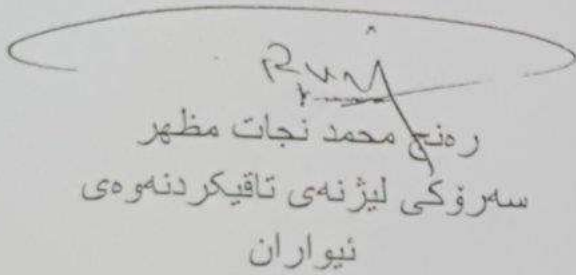 رەنج محمد نجات مظهر
سەرۆكی لیژنەی تاقیكردنەوەی
ئیواران